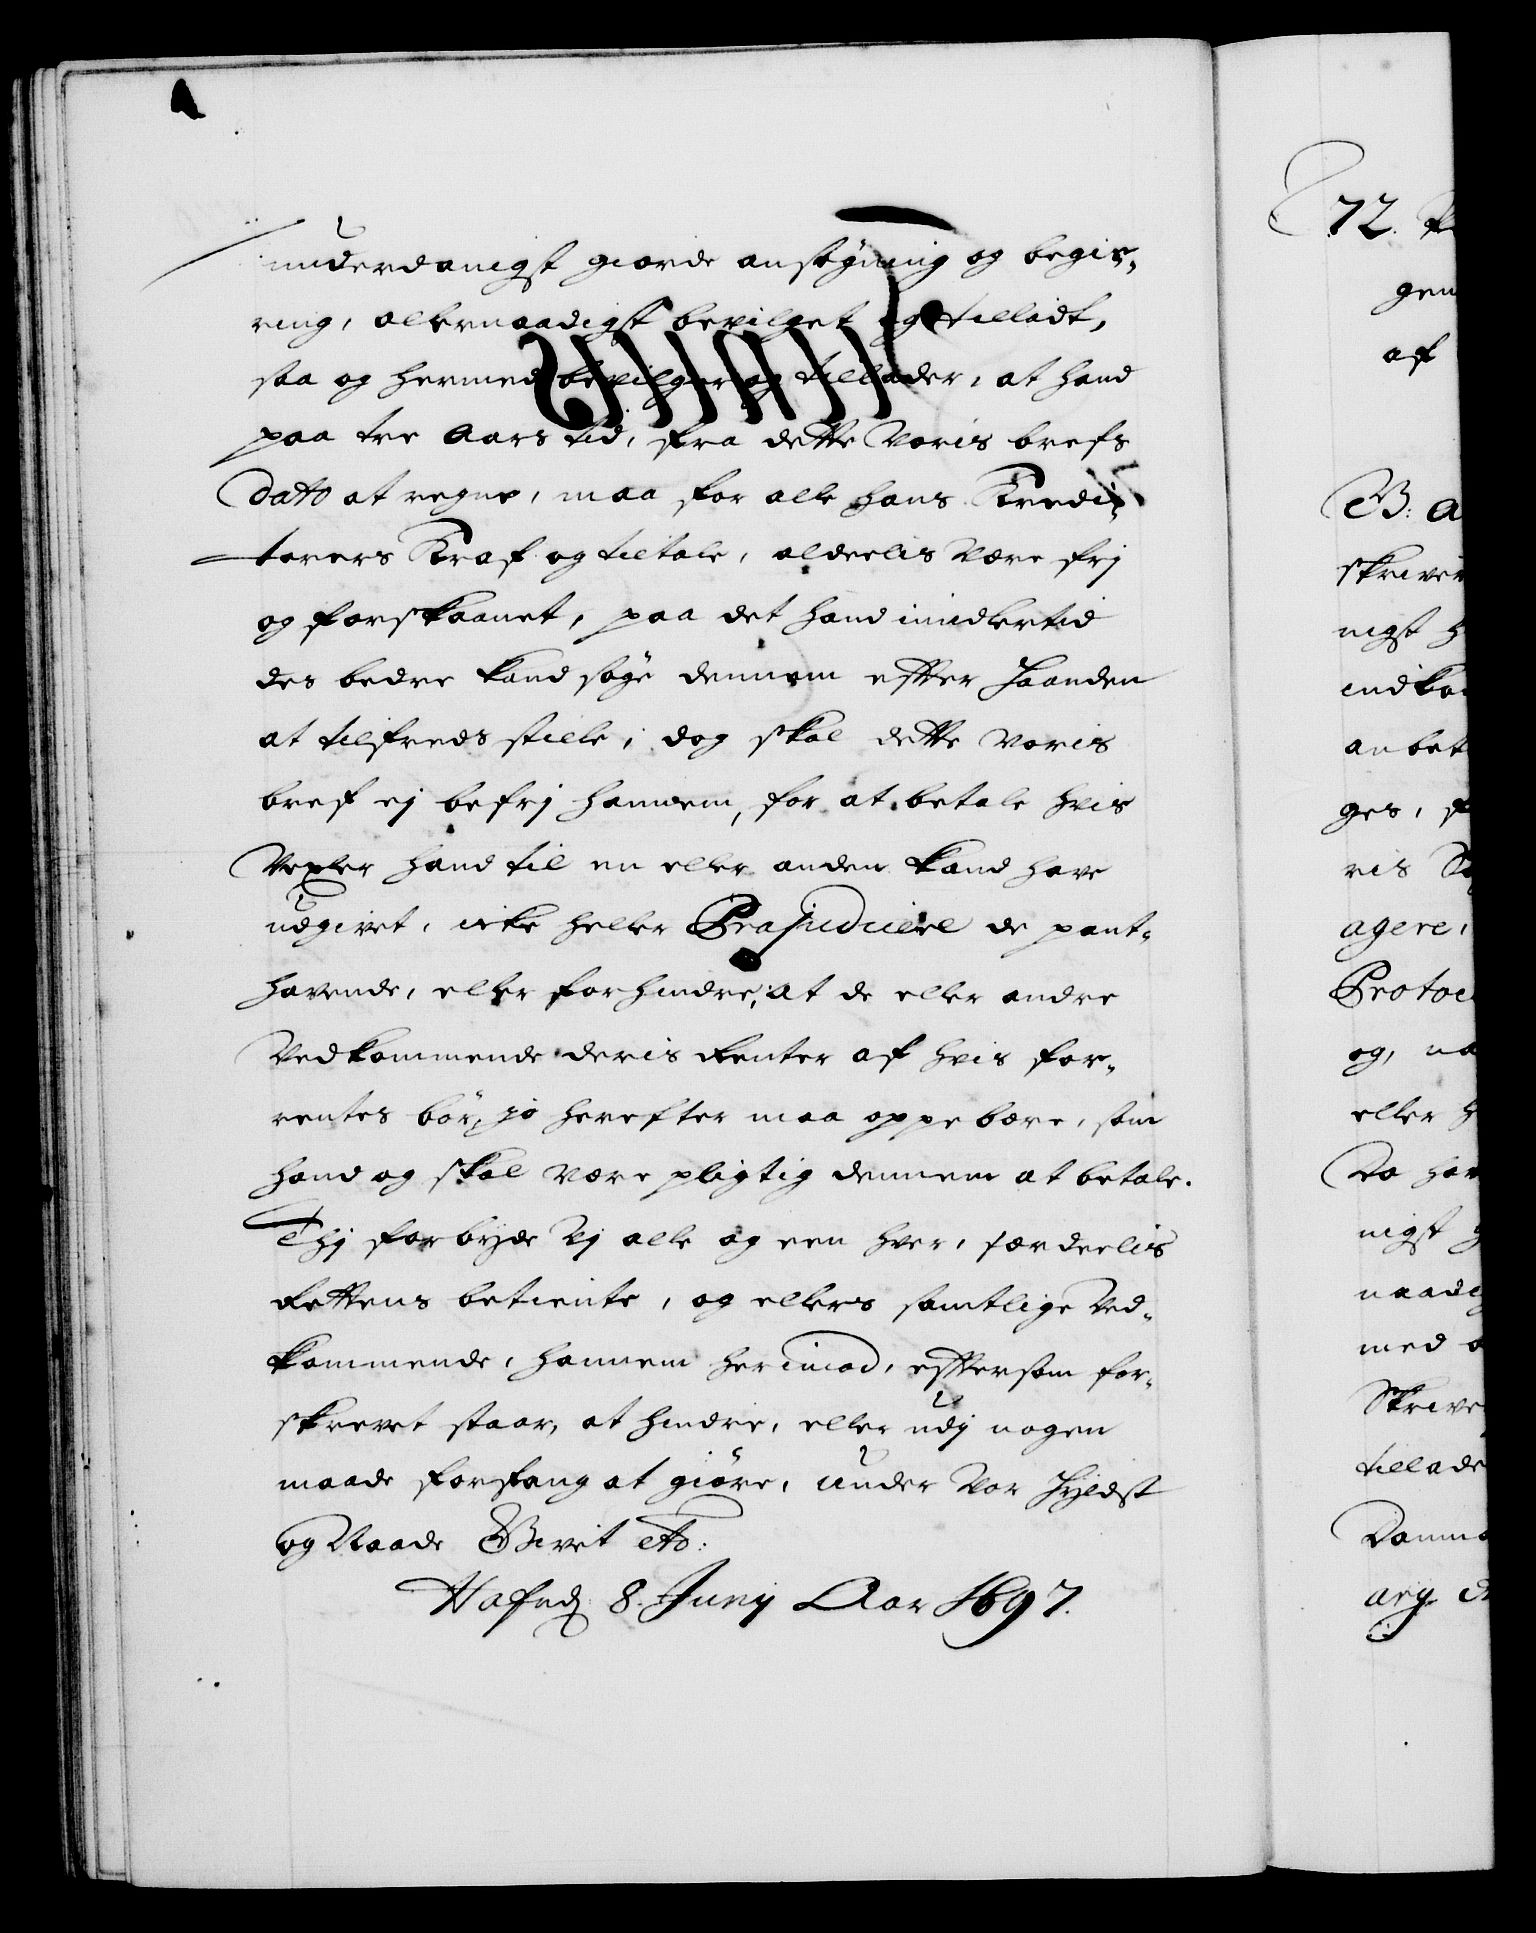 underdanigst giorde ansøgning og begie-
ring, allernaadigst bevilget og tilladt,
saa og hermed bevilger og tillader, at hand
paa tre Aars tid, fra dette Voris brefs
Dato at regne, maa for alle hans Kredi-
torers Kraf og tiltale, aldeelis Være frj
og forskaanet, paa det hand imidlertid
des bedre kand søge dennem effter Haanden
at tilfreds stille, dog skal dette Voris
bref ej befrj hannem, for at betale hvis
Vexler hand til en eller anden kand have
udgivet, icke heller Præjudicere de pant-
havende, eller forhindre, at de eller andre
Vedkommende deris Renter af hvis for-
rentes bør, jo herefter maa oppebære, som
hand og skal være pligtig dennem at betale.
Thj forbyde Vj alle og een hver, særdeelis
Rettens betiente, og ellers samtlige Ved-
kommende, hannem herimod, efftersom for-
skrevet staar, at hindre, eller udj nogen
maade forfang at giøre, under Vor Hyldst
og Naade Givet etc:
Hafnæ 8. Junij Aar 1697.
72.
gen
af
B: A
skriver
nigst
anbet
ges,
ris
agere,
Protoc
og, na
eller
Da har
nigst
naadig
med
Skrive
tillade
Danma